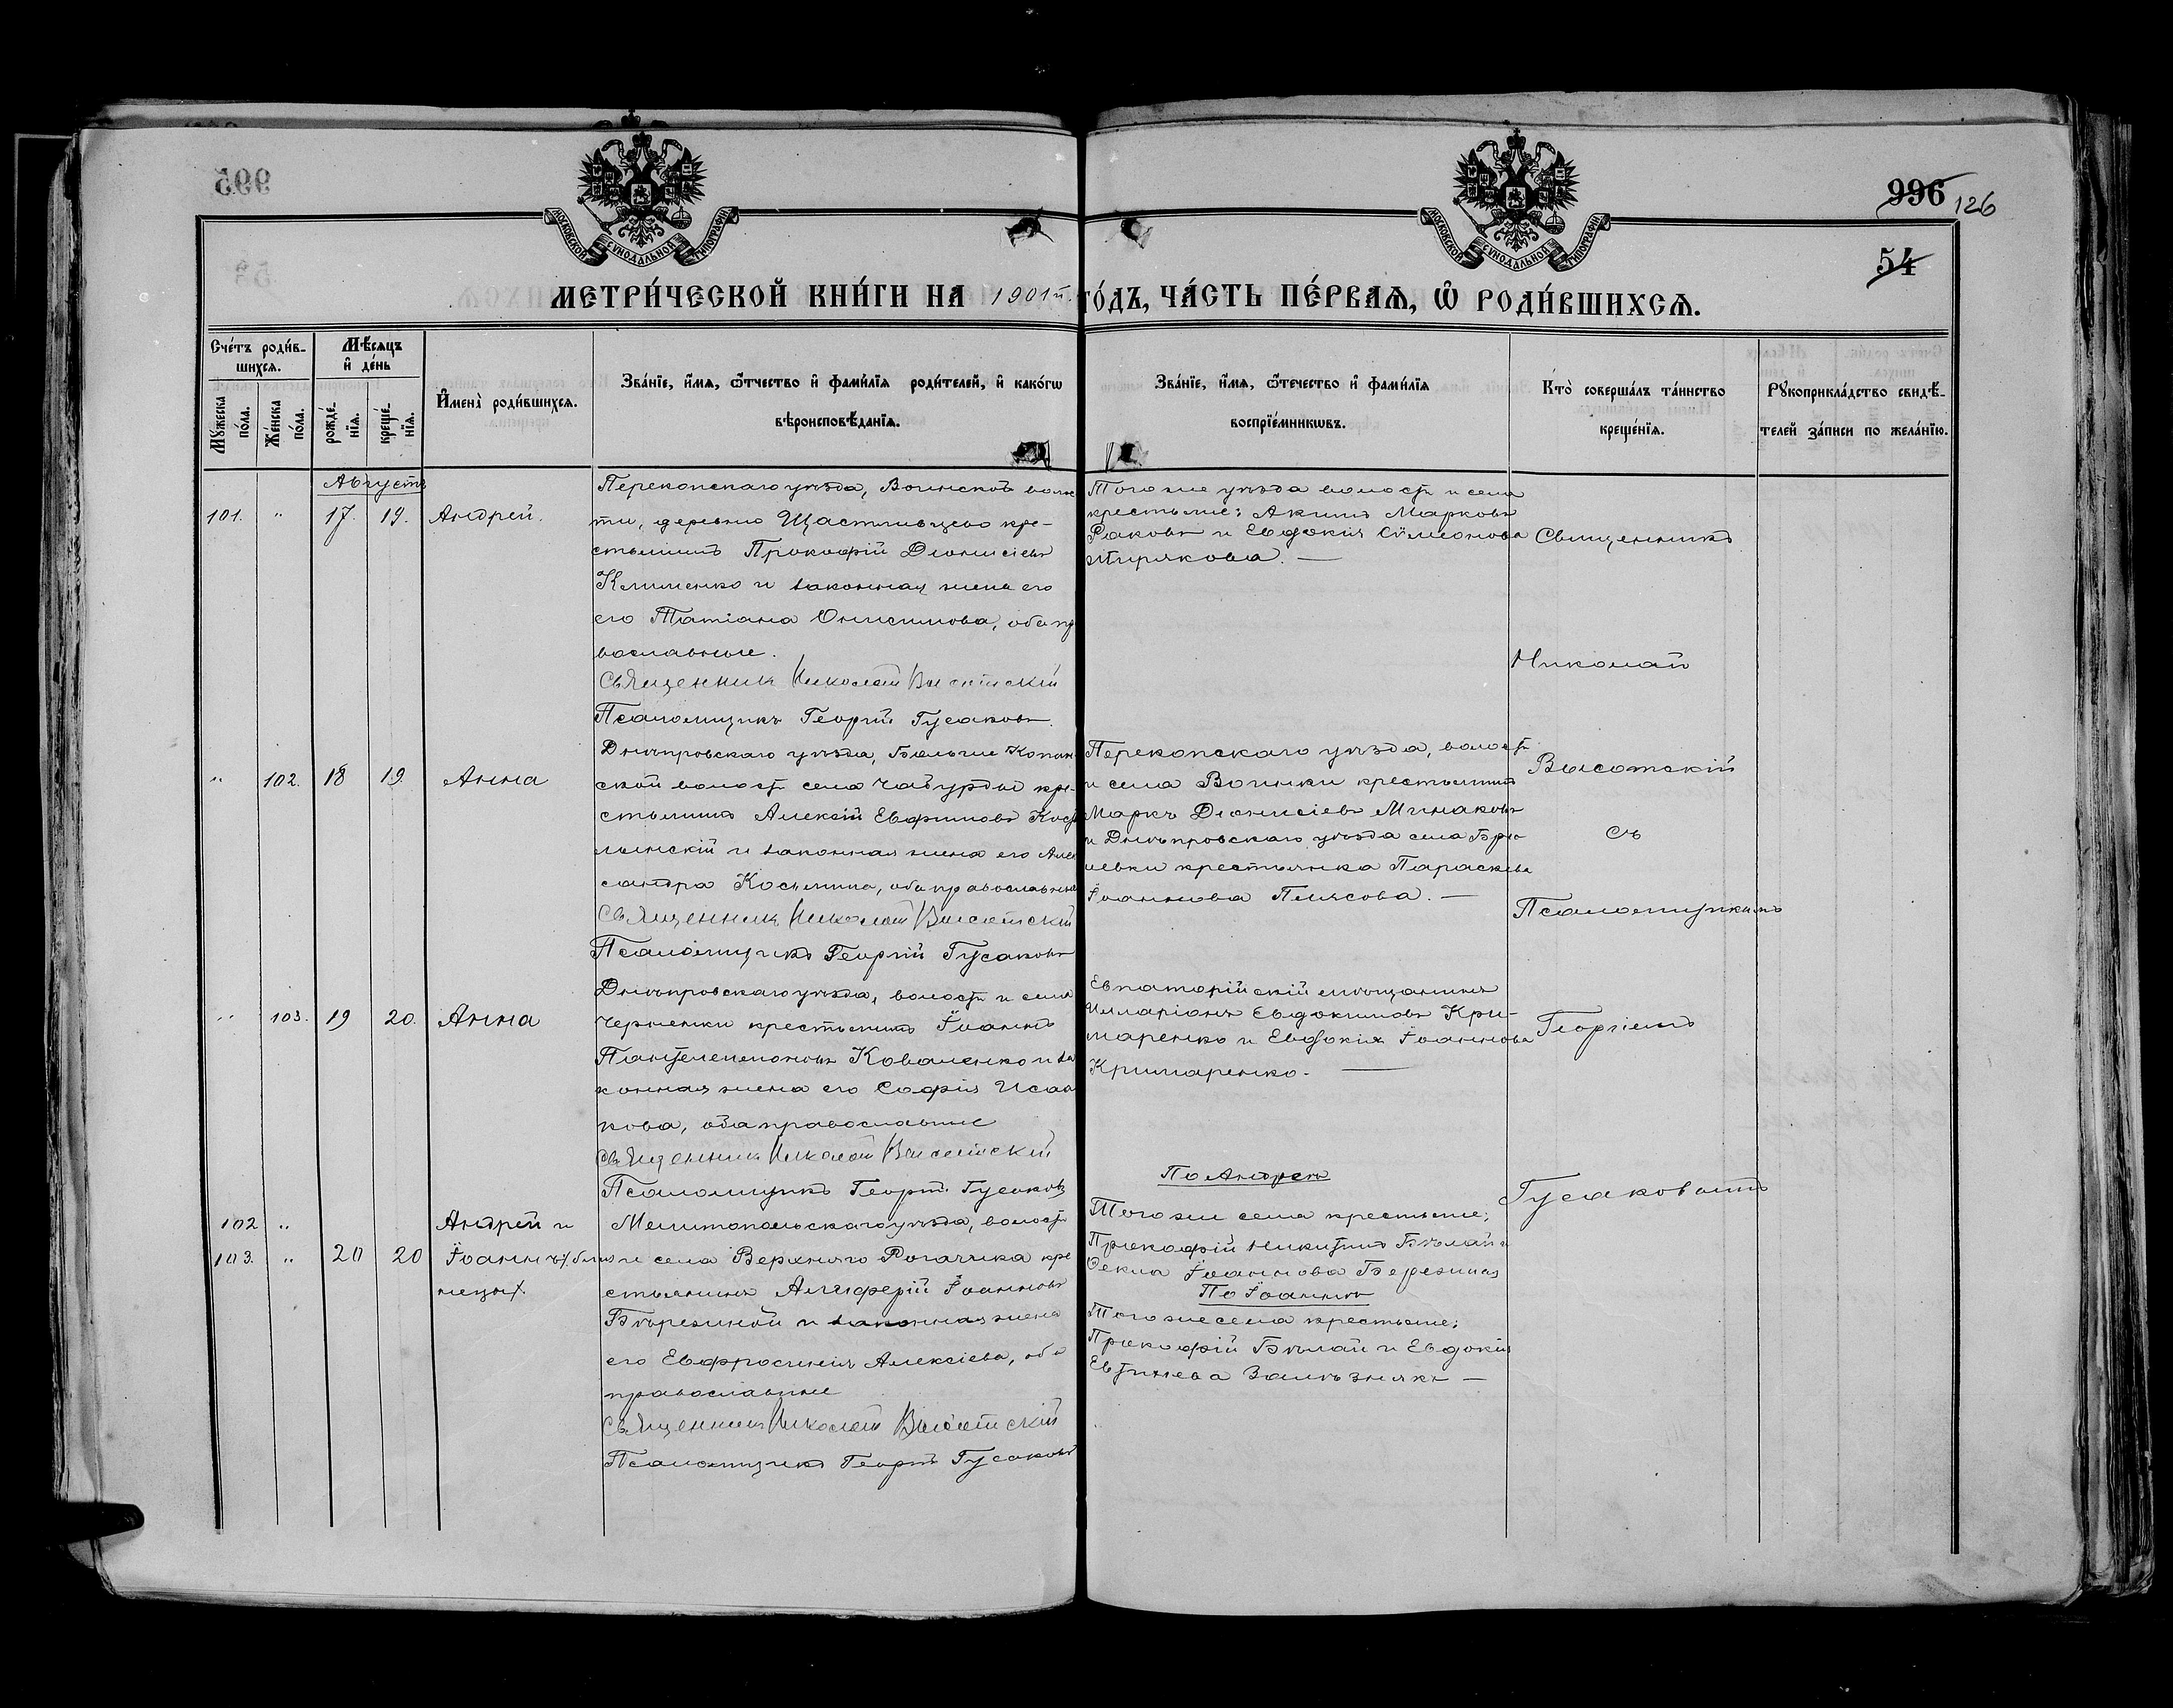 996 126
54
МОСКОВСКОЙ СѴНОДАЛЬНОЙ ТИПОГРАФІИ
МОСКОВСКОЙ СѴНОДАЛЬНОЙ ТИПОГРАФІИ
МЕТРИ́ЧЕСКОЙ КНИ́ГИ НА 1901й ГО́ДЪ, ЧА́СТЬ ПЕ́РВАѦ, Ѡ҆ РОДИ́ВШИХСѦ.
Сче́тъ роди́в-
шихсѧ.
Мꙋ́жеска по́ла.
Же́нска по́ла.
Мѣ́сѧцъ и҆ де́нь
рожде́-нїѧ.
креще́-нїѧ.
И҆мена̀ роди́вшихсѧ.
Зва́нїе, и҆́мѧ, ѻ҆́тчество и҆ фами́лїѧ роди́телей, и҆ како́гѡ
вѣроисповѣ́данїѧ.
Зва́нїе, и҆́мѧ, ѻ҆те́чество и҆ фами́лїѧ
воспрїе́мникѡвъ.
Кто̀ соверша́лъ та́инство
креще́нїѧ.
Рꙋкоприкла́дство свидѣ́-
телей за́писи по жела́нїю.
Августъ
101. " 17. 19. Андрей.
Перекопскаго уѣзда, Воинской волос
ти, деревню Щастливцево кре-
стьянинъ Прокофій Діонисіевъ
Клименко и законная жена его
его Татіана Онисимова, оба пр
вославные.
Священникъ Николай Высотскій
Псаломщикъ Георгій Гусаковъ.
Того же уѣзда волости и села
крестьяне: Акимъ Марковъ
Раковъ и Евдокія Сѵмеонова
Священникъ
Николай
" 102. 18 19. Анна
Днѣпровскаго уѣзда, Больше Копан
ской волости села Чабурды кре-
стьянинъ Алексій Евфимовъ
и законная жена его Алек
сандра Косьмина, оба православные
Священникъ Николай Высотскій
Псаломщикъ Георгій Гусаковъ
Перекопскаго уѣзда, волости
и села Воинки крестьянинъ
Маркъ Діонисіевъ Минаковъ
и Днѣпровскаго уѣзда села
крестьянка Параскева
Іоаннова Плясова.
Высотскій
съ
Псаломщикомъ
" 103. 19 20. Анна
Днѣпровскаго уѣзда, волости и села
Черненки крестьянинъ Іоаннъ
Пантелеимоновъ Коваленко и за
конная жена его Софія Исаа
кова, оба православные
Священникъ Николай Высотскій
Псаломщикъ Георгій Гусаковъ
Евпаторійскій мѣщанинъ
Илларіонъ Евдокимовъ Кри-
маренко и Евдокія Іоаннова
Кримаренко.
Георгіемъ
Гусаковымъ
102 "
103. " 20 20 Андрей и
Іоаннъ (близ
нецы).
Мелитопольскаго уѣзда, волости
и села Верхняго Рогачика кре
стьянинъ Іоанновъ
и законная жена
его Евфросинія Алексіева, оба
православные
Священникъ Николай Высотскій
Псаломщикъ Георгій Гусаковъ
По Андреѣ
Того же села крестьяне;
Прокофій Никитинъ Бѣлай и
Іоаннова Березиная
По Іоаннѣ
Того же села крестьяне:
Прокофій Бѣлай и Евдокія